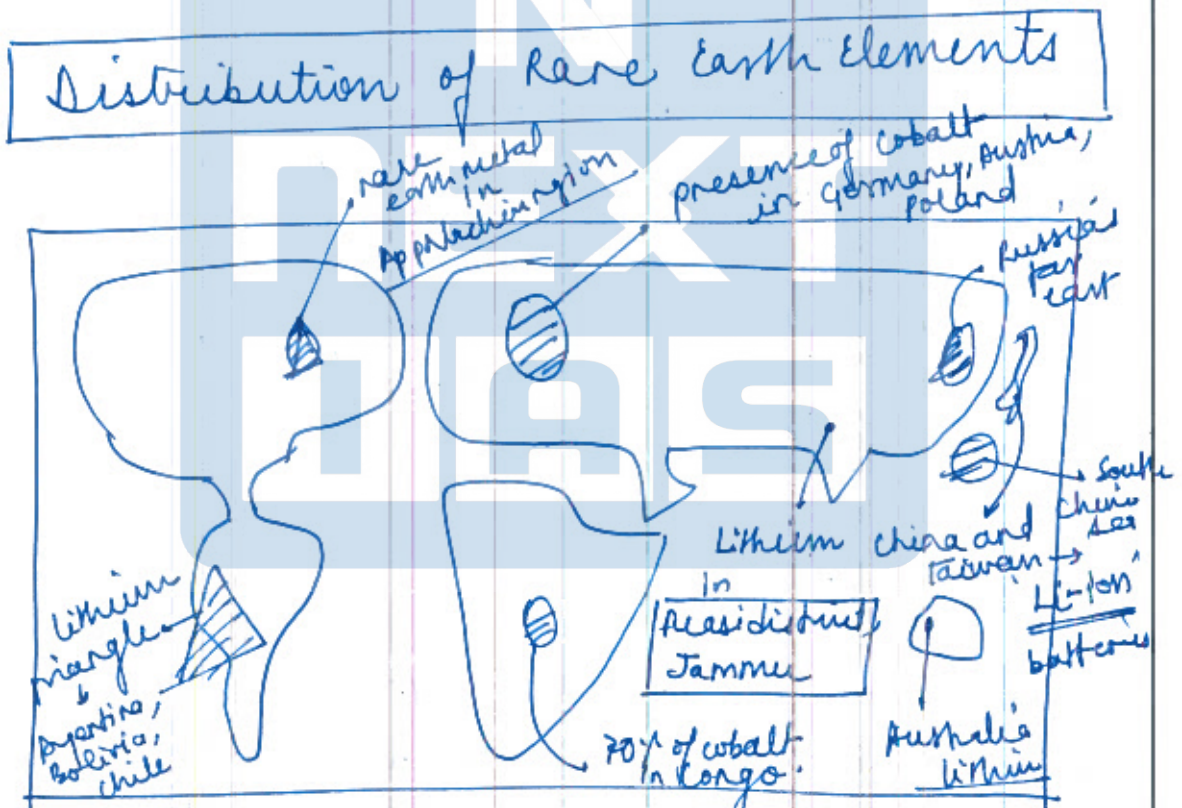 Distribution of Rare Earth Elements
rare
earth metal
in
Appalachian region
presence of cobalt
in Germany, Austria,
Poland
Russia's
far
east
South
China
Sea
Lithium
in
Reasi district,
Jammu
China and
Taiwan →
'Li-Ion'
batteries
Lithium
triangle
↓
Argentina,
Bolivia,
Chile
70% of cobalt
in Congo.
Australia
lithium
NEXT
IAS